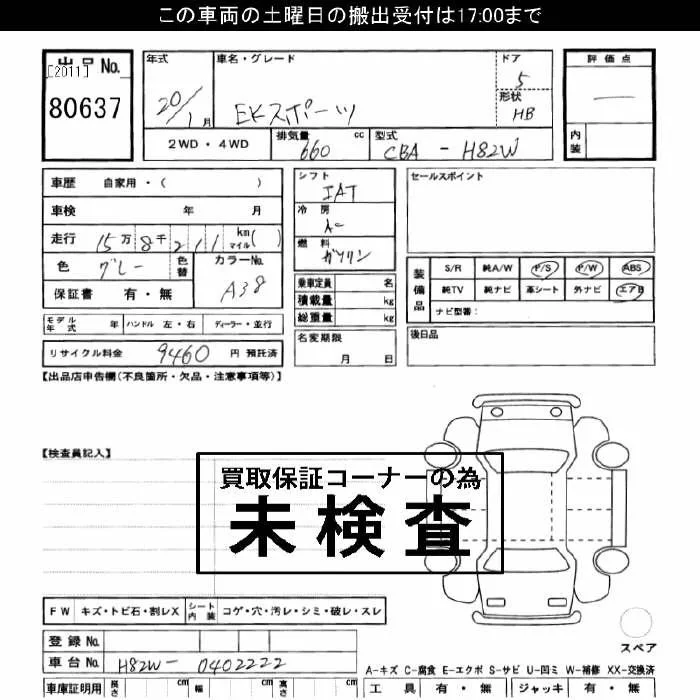 この車両の土曜日の搬出受付は17:00まで
出品No. [2011] 80637
年式 20/1月
車名・グレード EKスポーツ
ドア 5
形状 HB
評価点 ―
内装
2WD・4WD
排気量 660 cc
型式 CBA - H82W
車歴 自家用・( )
車検 年 月
走行 15万8千211 km マイル( )
色 グレー 色替
カラーNo. A38
保証書 有・無
モデル年式 年 ハンドル 左・右 ディーラー・並行
リサイクル料金 9460 円 預託済
シフト IAT
冷房 AC
燃料 ガソリン
乗車定員 名
積載量 kg
総重量 kg
名変期限 月 日
セールスポイント
装備品 S/R 純A/W P/S P/W ABS
純TV 純ナビ 革シート 外ナビ エアB
ナビ型番:
後日品
【出品店申告欄(不良箇所・欠品・注意事項等)】
【検査員記入】
買取保証コーナーの為
未検査
FW キズ・トビ石・割レX シート内装 コゲ・穴・汚レ・シミ・破レ・スレ
登録No.
車台No. H82W- 0402222
車庫証明用 長さ cm 幅 cm 高さ cm
スペア
A-キズ C-腐食 E-エクボ S-サビ U-凹ミ W-補修 XX-交換済
工具 有・無 ジャッキ 有・無